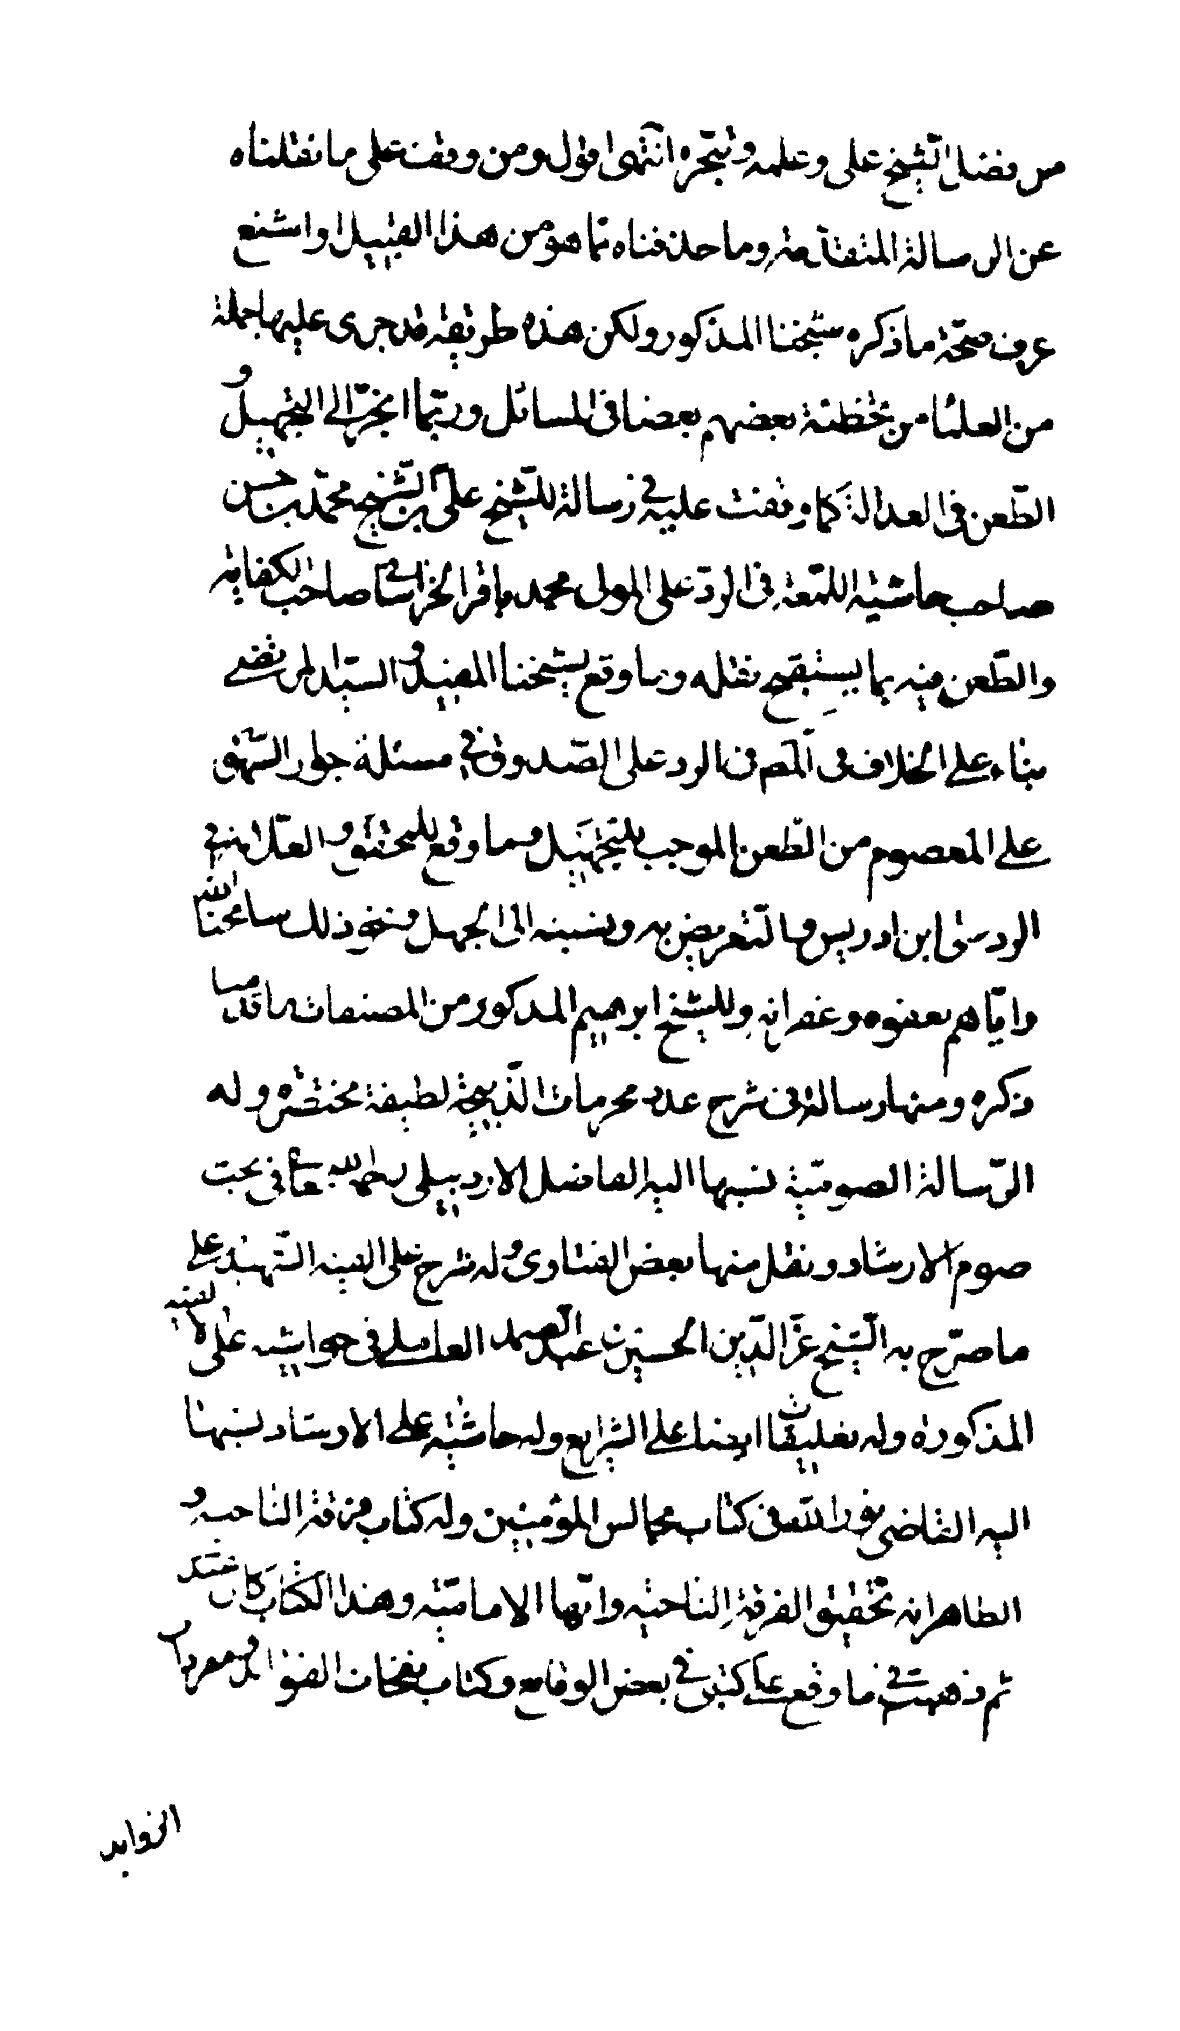 من فضل الشيخ على وعلمه وتبحره انتهى اقول ومن وقف على ما نقلناه
عن الرسالة المتقدمة وما حذفناه مما هو من هذا القبيل واشنع
عرف صحة ما ذكره شيخنا المذكور ولكن هذه طريقة قد جرى عليها جملة
من العلماء من تخطئة بعضهم بعضا فى المسائل وربما انجر الى التجهيل و
الطعن فى العدالة كما وقفت عليه فى رسالة للشيخ على بن الشيخ محمد بن حسن
صاحب حاشية اللمعة فى الرد على المولى محمد باقر الخراسانى صاحب الكفاية
والطعن فيه بما يستقبح نقله وما وقع لشيخنا المفيد و السيد المرتضى
بناء على الخلاف فى فى الرد على الصدوق فى مسئلة جواز السهو
على المعصوم من الطعن الموجب للتجهيل وما وقع للمحقق و العلامة فى
الرد على ابن ادريس والتعريض به ونسبته الى الجهل ونحو ذلك سامحنا الله
واياهم بعفوه وغفرانه وللشيخ ابراهيم المذكور من المصنفات ما قدمنا
ذكره ومنها رسالة فى شرح عدد محرمات الذبيحة لطيفة مختصرة وله
الرسالة الصومية نسبها اليه الفاضل الاردبيلى رحمه الله تعا فى بحث
صوم الارشاد ونقل منها بعض الفتاوى وله شرح على الفيه الشهيد على
ما صرح به الشيخ عز الدين الحسين بن عبد الصمد العاملى فى حواشيه على الالفيه
المذكوره وله تعليقات ايضا على الشرايع وله حاشيه على الارشاد نسبها
اليه القاضى نور الله فى كتاب مجالس المؤمنين وله كتاب فرقة الناجيه و
الظاهر انه تحقيق الفرقة الناجيه وانها الاماميه وهذا الكتاب كان عندى
ثم ذهبت فى ما وقع على كتبى فى بعض الوقايع وكتاب نفحات الفوائد
الزوايد